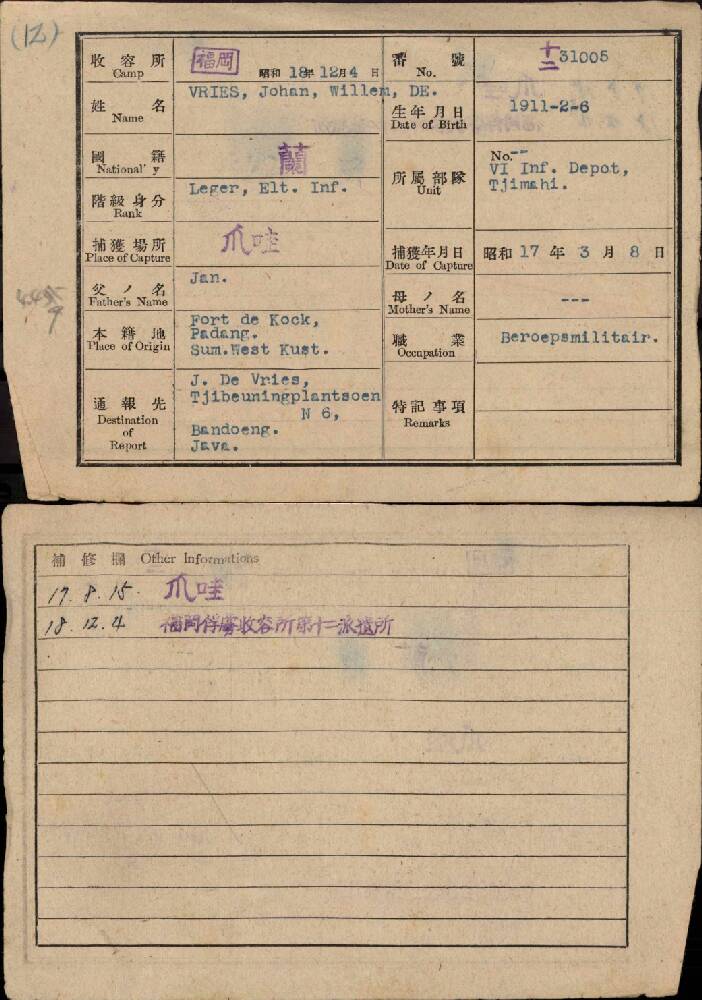 (12)
收容所 Camp
福岡
昭和 18年 12月 4日
番號 No.
十二 31005
姓名 Name
VRIES, Johan, Willem, DE.
生年月日 Date of Birth
1911-2-6
國籍 National y
蘭
所屬部隊 Unit
No.--
VI Inf. Depot,
Tjimahi.
階級身分 Rank
Leger, Elt. Inf.
捕獲場所 Place of Capture
爪哇
捕獲年月日 Date of Capture
昭和 17 年 3 月 8 日
父ノ名 Father's Name
Jan.
母ノ名 Mother's Name
---
本籍地 Place of Origin
Fort de Kock,
Padang.
Sum.West Kust.
職業 Occupation
Beroepsmilitair.
通報先 Destination of Report
J. De Vries,
Tjibeuningplantsoen
N 6,
Bandoeng.
Java.
特記事項 Remarks
補修欄 Other Informations
17. 8. 15. 爪哇
18. 12. 4 福岡俘虜收容所第十二派遣所